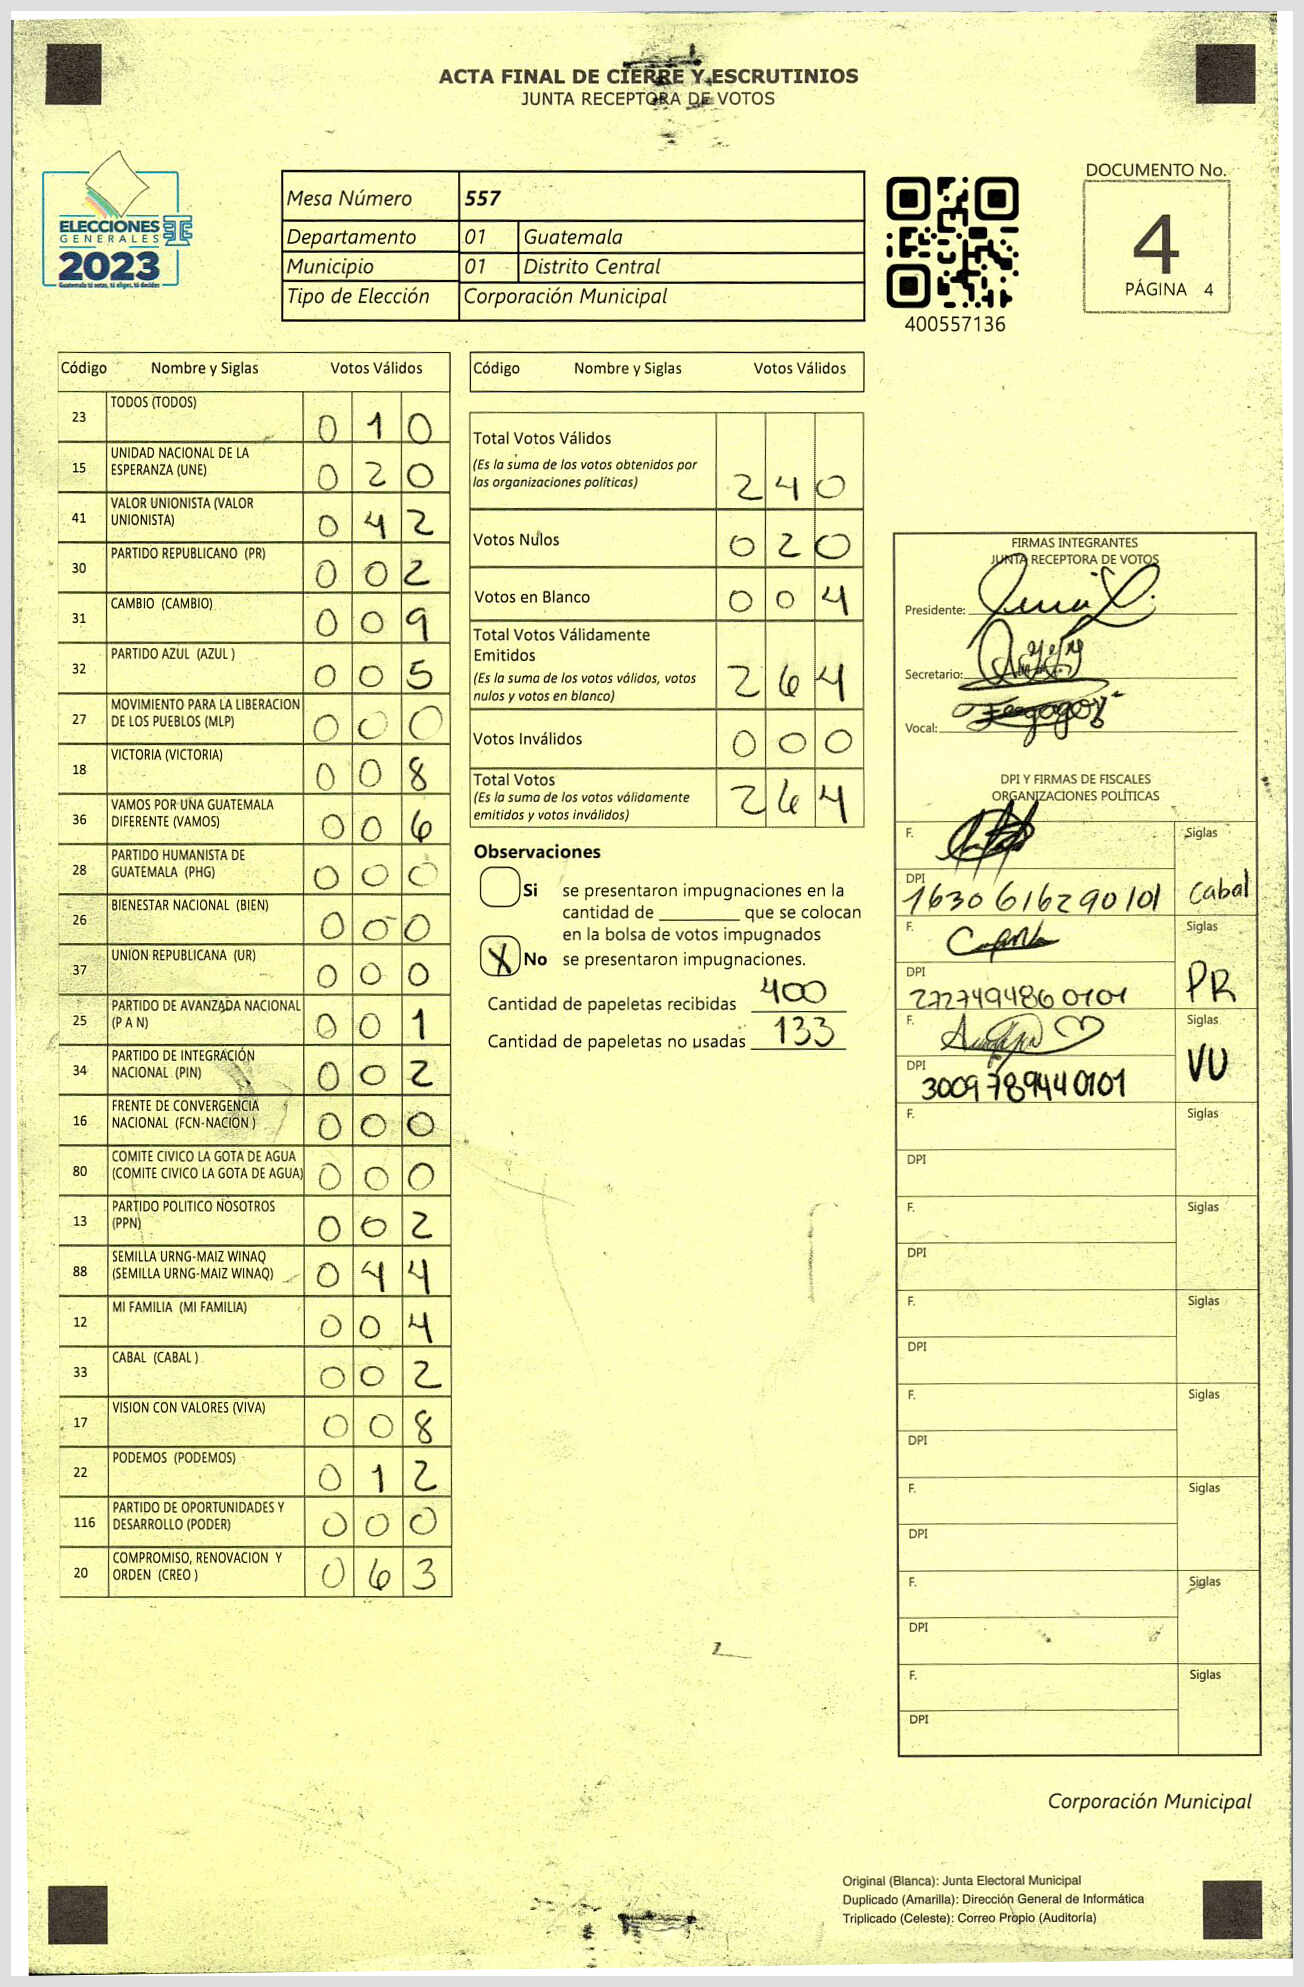 ACTA FINAL DE CIERRE Y ESCRUTINIOS
JUNTA RECEPTORA DE VOTOS
ELECCIONES
GENERALES
2023
Guatemala tú votas, tú eliges, tú decides
Mesa Número 557
Departamento 01 Guatemala
Municipio 01 Distrito Central
Tipo de Elección Corporación Municipal
400557136
DOCUMENTO No.
4
PÁGINA 4
Código Nombre y Siglas Votos Válidos
23 TODOS (TODOS) 0 1 0
15 UNIDAD NACIONAL DE LA ESPERANZA (UNE) 0 2 0
41 VALOR UNIONISTA (VALOR UNIONISTA) 0 4 2
30 PARTIDO REPUBLICANO (PR) 0 0 2
31 CAMBIO (CAMBIO) 0 0 9
32 PARTIDO AZUL (AZUL ) 0 0 5
27 MOVIMIENTO PARA LA LIBERACION DE LOS PUEBLOS (MLP) 0 0 0
18 VICTORIA (VICTORIA) 0 0 8
36 VAMOS POR UNA GUATEMALA DIFERENTE (VAMOS) 0 0 6
28 PARTIDO HUMANISTA DE GUATEMALA (PHG) 0 0 0
26 BIENESTAR NACIONAL (BIEN) 0 0 0
37 UNION REPUBLICANA (UR) 0 0 0
25 PARTIDO DE AVANZADA NACIONAL (P A N) 0 0 1
34 PARTIDO DE INTEGRACIÓN NACIONAL (PIN) 0 0 2
16 FRENTE DE CONVERGENCIA NACIONAL (FCN-NACION ) 0 0 0
80 COMITE CIVICO LA GOTA DE AGUA (COMITE CIVICO LA GOTA DE AGUA) 0 0 0
13 PARTIDO POLITICO NOSOTROS (PPN) 0 0 2
88 SEMILLA URNG-MAIZ WINAQ (SEMILLA URNG-MAIZ WINAQ) 0 4 4
12 MI FAMILIA (MI FAMILIA) 0 0 4
33 CABAL (CABAL ) 0 0 2
17 VISION CON VALORES (VIVA) 0 0 8
22 PODEMOS (PODEMOS) 0 1 2
116 PARTIDO DE OPORTUNIDADES Y DESARROLLO (PODER) 0 0 0
20 COMPROMISO, RENOVACION Y ORDEN (CREO ) 0 6 3
Código Nombre y Siglas Votos Válidos
Total Votos Válidos
(Es la suma de los votos obtenidos por las organizaciones políticas) 2 4 0
Votos Nulos 0 2 0
Votos en Blanco 0 0 4
Total Votos Válidamente Emitidos
(Es la suma de los votos válidos, votos nulos y votos en blanco) 2 6 4
Votos Inválidos 0 0 0
Total Votos
(Es la suma de los votos válidamente emitidos y votos inválidos) 2 6 4
Observaciones
Si se presentaron impugnaciones en la
cantidad de ________ que se colocan
en la bolsa de votos impugnados
X No se presentaron impugnaciones.
Cantidad de papeletas recibidas 400
Cantidad de papeletas no usadas 133
FIRMAS INTEGRANTES
JUNTA RECEPTORA DE VOTOS
Presidente:
Secretario:
Vocal:
DPI Y FIRMAS DE FISCALES
ORGANIZACIONES POLÍTICAS
F. Siglas
DPI 1630 61629 0101 Cabal
F. Siglas
DPI 272749486 0101 PR
F. Siglas
DPI 3009 78944 0101 VU
F. Siglas
DPI
F. Siglas
DPI
F. Siglas
DPI
F. Siglas
DPI
F. Siglas
DPI
F. Siglas
DPI
F. Siglas
DPI
Corporación Municipal
Original (Blanca): Junta Electoral Municipal
Duplicado (Amarilla): Dirección General de Informática
Triplicado (Celeste): Correo Propio (Auditoría)